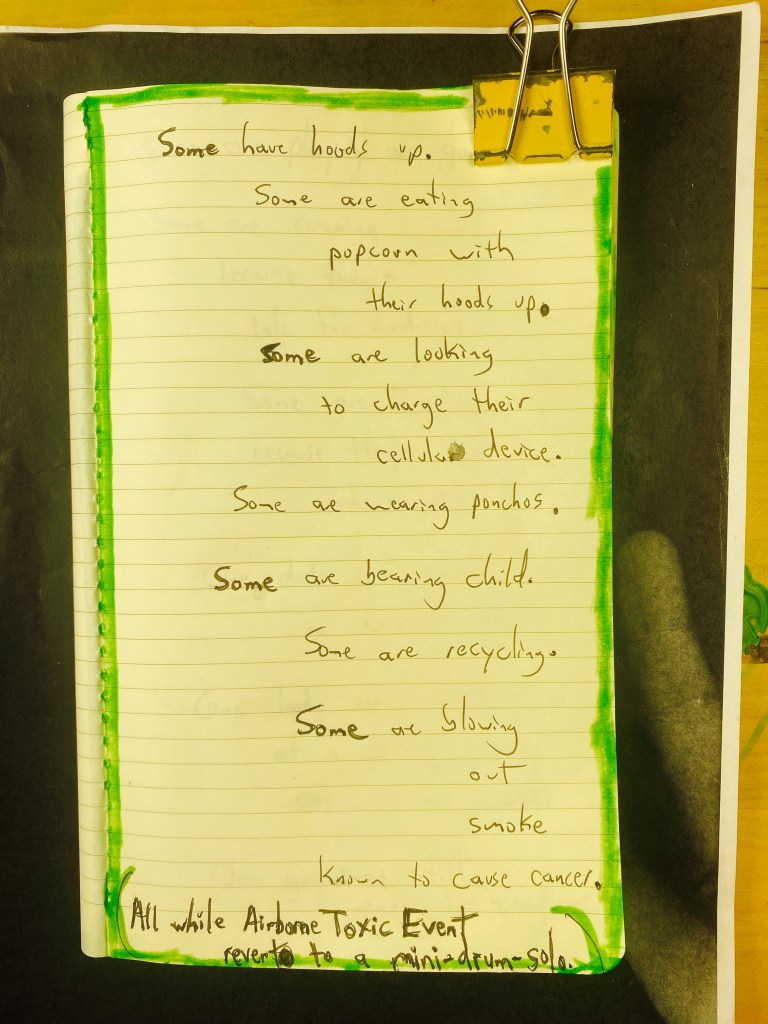 Some have hoods up.
Some are eating
popcorn with
their hoods up.
Some are looking
to charge their
cellular device.
Some are wearing ponchos.
Some are bearing child.
Some are recycling.
Some are blowing
out
smoke
known to cause cancer.
(All while Airborne Toxic Event
reverts to a mini-drum-solo.)